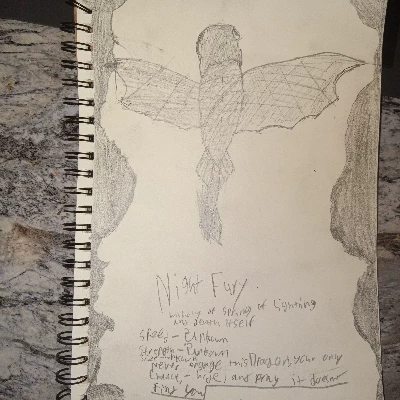 Night Fury.
unholy of spring of Lightning
and death itself
Speed - Unknown
Strength - Unknown
never engage this Dragon, your only
chance - hide, and pray it doesn't
find you